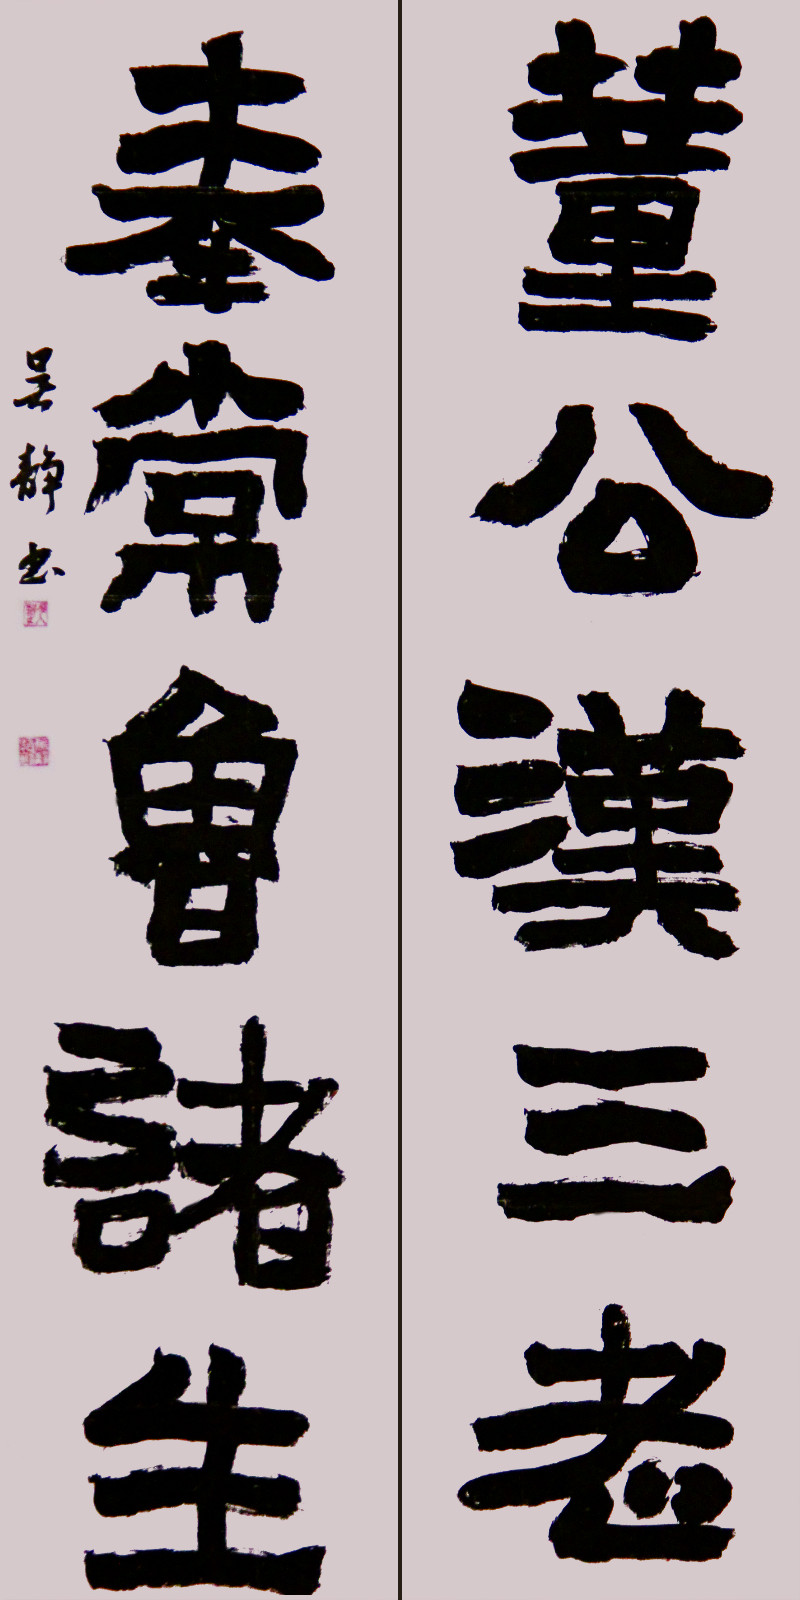 董公漢三老
奉常魯諸生
吴静书